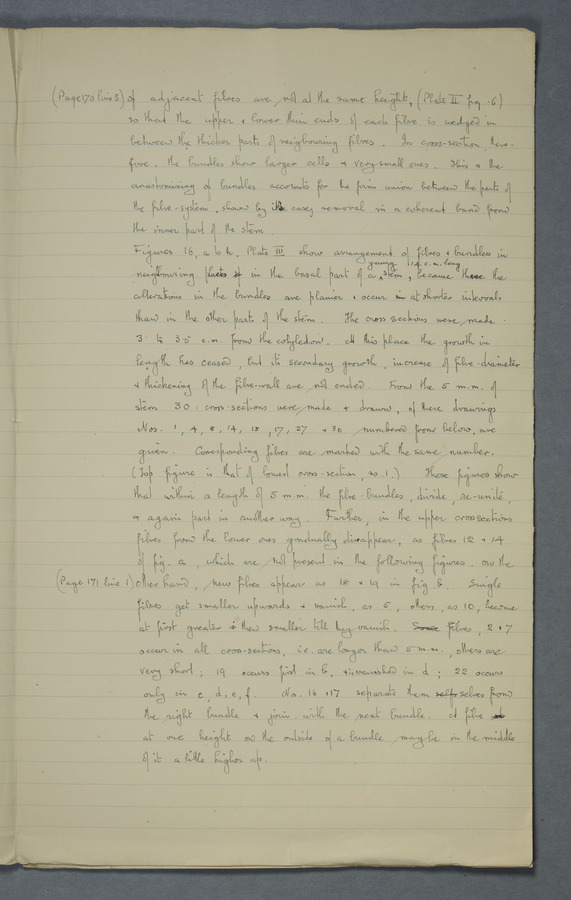 (Page 170 line 5) of adjacent fibres are not at the same height, (Plate II fig. 6)
so that the upper & lower thin ends of each fibre is wedged in
between the thicker parts of neighbouring fibres. In cross-section, there-
fore, the bundles show larger cells & very small ones. This & the
anastomosing of bundles accounts for the firm union between the parts of
the fibre-system, shown by its easy removal in a coherent band from
the inner part of the stem.
Figures 16, a to h, Plate III show arrangement of fibres & bundles in
young c.m. long
neighbouring in the basal part of a stem, because the
alterations in the bundles are plainer & occur at shorter intervals
than in the other parts of the stem. The cross sections were made
3 to 3.5 c.m. from the cotyledon. At this place the growth in
length has ceased, but its secondary growth, increase of fibre-diameter
& thickening of the fibre-wall are not ended. From the 5 m.m. of
stem 30 cross-sections were made & drawn, of these drawings
Nos. 1, 4, 8, 14, 17, 27 & 30 numbered from below, are
given. Corresponding fibres are marked with the same number.
(Top figure is that of lowest cross-section, no. 1.) These figures show
that within a length of 5 m.m. the fibre-bundles, divide, re-unite,
& again part in another way. Further, in the upper cross sections
fibres from the lower ones gradually disappear, as fibres 12 & 14
of fig. a, which are not present in the following figures. On the
(Page 171 line 1) other hand, new fibres appear as 18 & 19 in fig b. Single
fibres get smaller upwards & vanish, as 5, others, as 10, become
at first greater & then smaller till they vanish. Some fibres, 2 & 7
occur in all cross-sections, i.e. are longer than 5 m.m., others are
very short; 19 occurs first in b, & is vanished in d; 22 occurs
only in c, d, e, f. Nos. 16 & 17 separate them selves from
the right bundle & join with the next bundle. A fibre
at one height on the outside of a bundle may be in the middle
of it a little higher up.